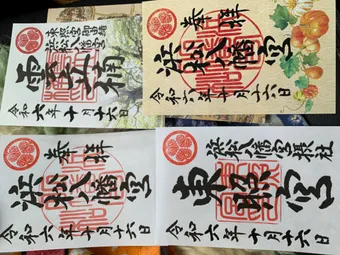 浜松八幡宮
雲立楠
令和六年十月十六日
奉拝
浜松八幡宮
令和六年十月十六日
奉拝
浜松八幡宮
令和六年十月十六日
浜松八幡宮摂社
東照宮
令和六年十月十六日